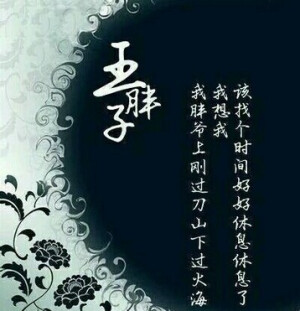 王胖子
我胖爷上刚过刀山下过火海
我想我
该找个时间好好休息休息了